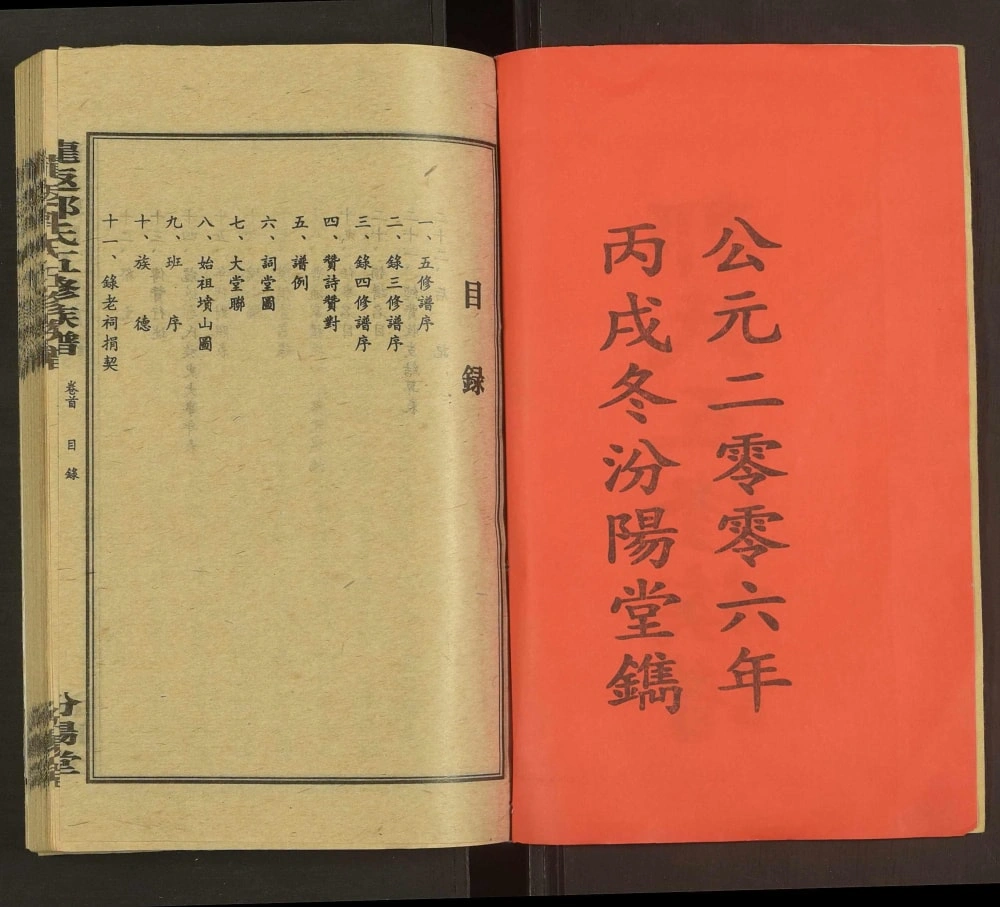 公元二零零六年
丙戌冬汾陽堂鐫
目錄
一、五修譜序
二、錄三修譜序
三、錄四修譜序
四、贊詩贊對
五、譜例
六、詞堂圖
七、大堂聯
八、始祖墳山圖
九、班序
十、族德
十一、錄老祠捐契
氏五修族譜
卷首 目錄
汾陽堂